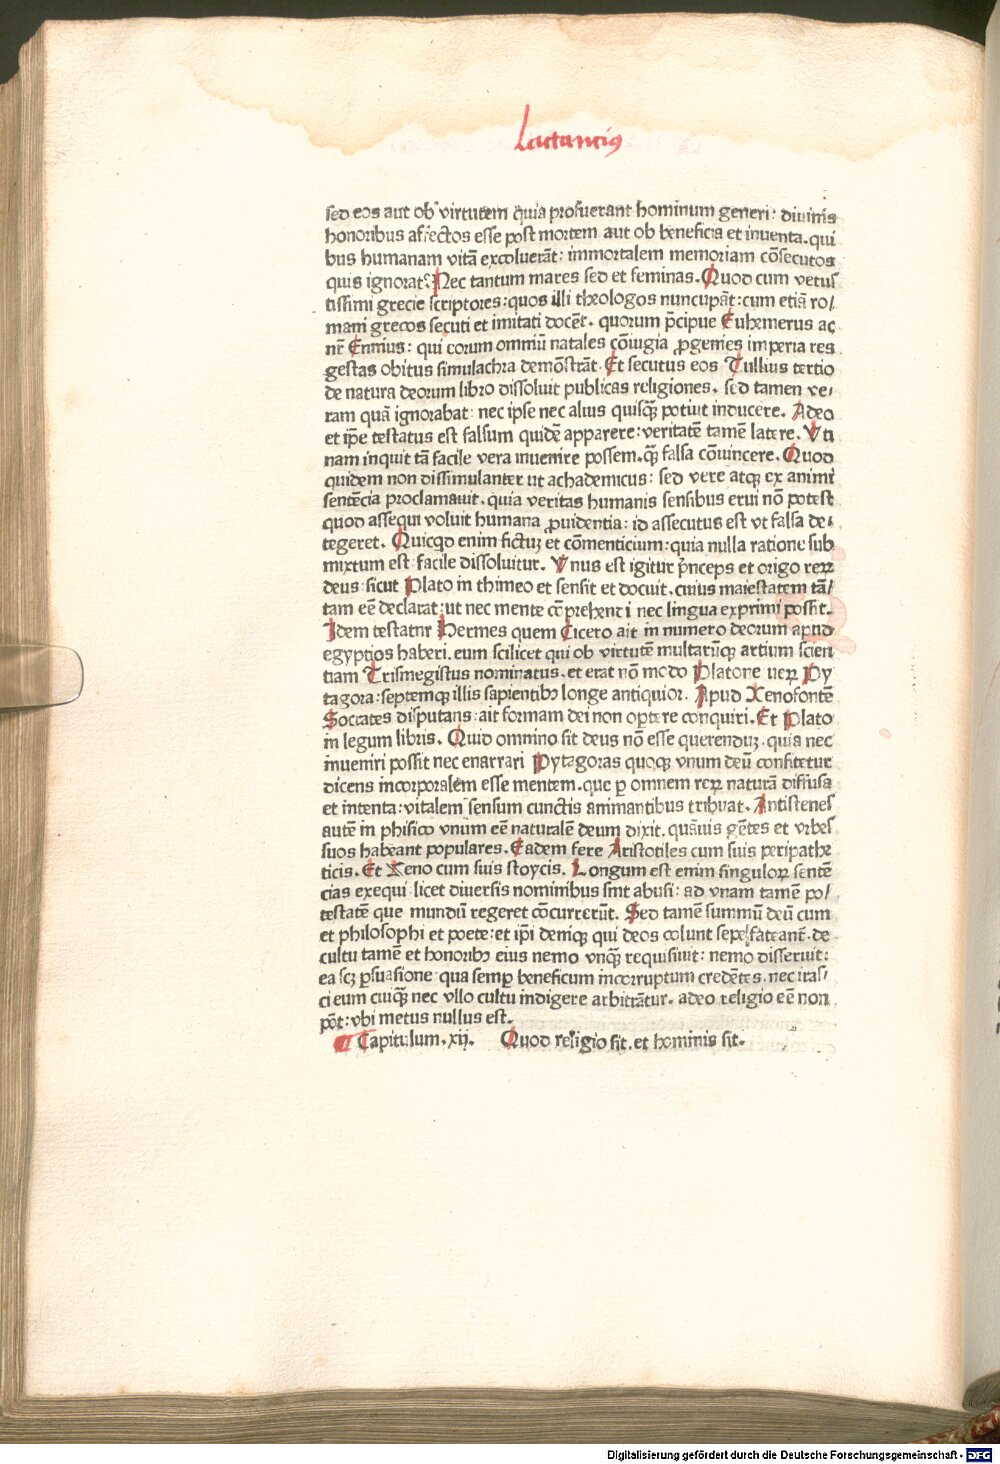 Lactancius
sed eos aut ob virtutem quia profuerant hominum generi: diuinis
honoribus affectos esse post mortem aut ob beneficia et inuenta. qui
bus humanam vitā excoluerāt: immortalem memoriam cōsecutos
quis ignorat? Nec tantum mares sed et feminas. Quod cum vetus
tissimi grecie scriptores: quos illi theologos nuncupāt: cum etiā ro/
mani grecos secuti et imitati docēt. quorum p̄cipue Euhemerus ac
nr̄ Ennius: qui eorum omniū natales cōiugia ꝓgenies imperia res
gestas obitus simulachra demōstrāt. Et secutus eos Tullius tertio
de natura deorum libro dissoluit publicas religiones. sed tamen ve/
ram quā ignorabat: nec ipse nec alius quisq̄ potuit inducere. Adeo
et ip̄e testatus est falsum quidē apparere: veritatē tamē latere. Vti
nam inquit tā facile vera inuenire possem. q̄ falsa cōuincere. Quod
quidem non dissimulanter ut achademicus: sed vere atqꝫ ex animi
sentēcia proclamauit. quia veritas humanis sensibus erui nō potest
quod assequi voluit humana ꝓuidentia: id assecutus est vt falsa de/
tegeret. Quicqd enim fictuꝫ et cōmenticium: quia nulla ratione sub
mixtum est: facile dissoluitur. Vnus est igitur p̄nceps et origo reꝝ
deus: sicut Plato in thimeo et sensit et docuit. cuius maiestatem tā/
tam eē declarat: ut nec mente cōprehendi nec lingua exprimi possit.
Idem testatur Hermes quem Cicero ait in numero deorum apud
egyptios haberi. eum scilicet qui ob virtutē multarūqꝫ artium scien
tiam Trismegistus nominatus. et erat nō modo Platone ueꝝ Py
tagora: septemqꝫ illis sapientibꝰ longe antiquior. Apud Xenofontē
Socrates disputans: ait formam dei non oꝑtere conquiri. Et Plato
in legum libris. Quid omnino sit deus nō esse querenduꝫ. quia nec
inueniri possit nec enarrari Pytagoras quoqꝫ vnum deū confitetur
dicens incorporalem esse mentem. que ꝑ omnem reꝝ naturā diffusa
et intenta: vitalem sensum cunctis animantibus tribuat. Antistenes
autē in phisico vnum eē naturalē deum dixit. quāuis gētes et vrbes
suos habeant populares. Eadem fere Aristotiles cum suis peripathe
ticis. Et Xeno cum suis stoycis. Longum est enim singuloꝝ sentē
cias exequi. licet diuersis nominibus sint abusi: ad vnam tamē po/
testatē que mundū regeret cōcurrerūt. Sed tamē summū deū cum
et philosophi et poete: et ip̄i deniqꝫ qui deos colunt sepe fateant̄. de
cultu tamē et honoribꝰ eius nemo vnq̄ requisiuit: nemo disseruit:
ea scꝫ ꝑsuasione: qua semꝑ beneficum incorruptum credētes. nec irasi
ci eum cuiq̄ nec vllo cultu indigere arbitrātur. adeo religio eē non
pōt: vbi metus nullus est.
Capitulum. xij. Quod religio sit. et hominis sit.
Digitalisierung gefördert durch die Deutsche Forschungsgemeinschaft - DFG